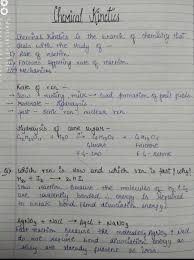 Chemical Kinetics
Chemical Kinetics is the branch of chemistry that
deals with the study of -
Rate of reaction
Factors affecting rate of reaction
Mechanism
Rate of rxn -
Slow - rusting,
Moderate - Hydrolysis
fast - ionic rxn
Hydrolysis of cane sugar -
C12H22O11 + H2O → C6H12O6 + C6H12O6
Glucose
Fructose
Q) Which rxn is slow and which rxn is fast & why?
H2 + I2 → 2HI
Slow reaction because the molecules of H2 & I2
are covalently bonded & energy is required
to break bonds (bond dissociation energy)
AgNO3 + NaCl → AgCl + NaNO3
Fast reaction because the molecules AgNO3 & NaCl
do not require bond dissociation energy as
they are already present as ions.